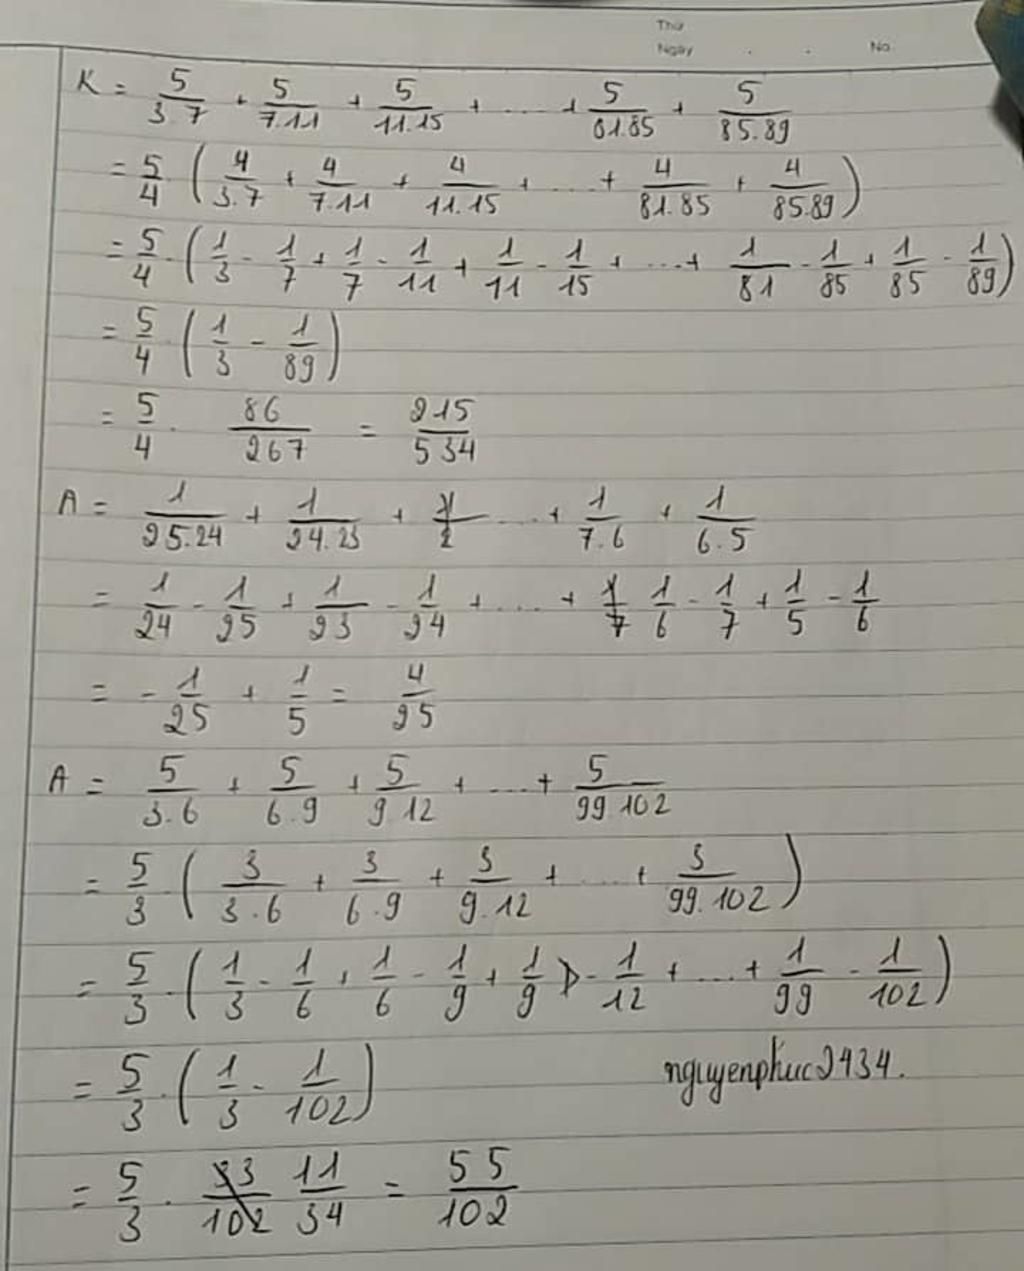 Thứ
Ngày . . No
K = 5/3.7 + 5/7.11 + 5/11.15 + .... + 5/81.85 + 5/85.89
= 5/4 . ( 4/3.7 + 4/7.11 + 4/11.15 + ... + 4/81.85 + 4/85.89 )
= 5/4 . ( 1/3 - 1/7 + 1/7 - 1/11 + 1/11 - 1/15 + ... + 1/81 - 1/85 + 1/85 - 1/89 )
= 5/4 . ( 1/3 - 1/89 )
= 5/4 . 86/267 = 215/534
A = 1/25.24 + 1/24.23 + ... + 1/7.6 + 1/6.5
= 1/24 - 1/25 + 1/23 - 1/24 + .... + 1/6 - 1/7 + 1/5 - 1/6
= - 1/25 + 1/5 = 4/25
A = 5/3.6 + 5/6.9 + 5/9.12 + ... + 5/99.102
= 5/3 . ( 3/3.6 + 3/6.9 + 3/9.12 + ... + 3/99.102 )
= 5/3 . ( 1/3 - 1/6 + 1/6 - 1/9 + 1/9 - 1/12 + ... + 1/99 - 1/102 )
= 5/3 . ( 1/3 - 1/102 )
nguyenphuc2434.
= 5/3 . 33/102 11/34 = 55/102